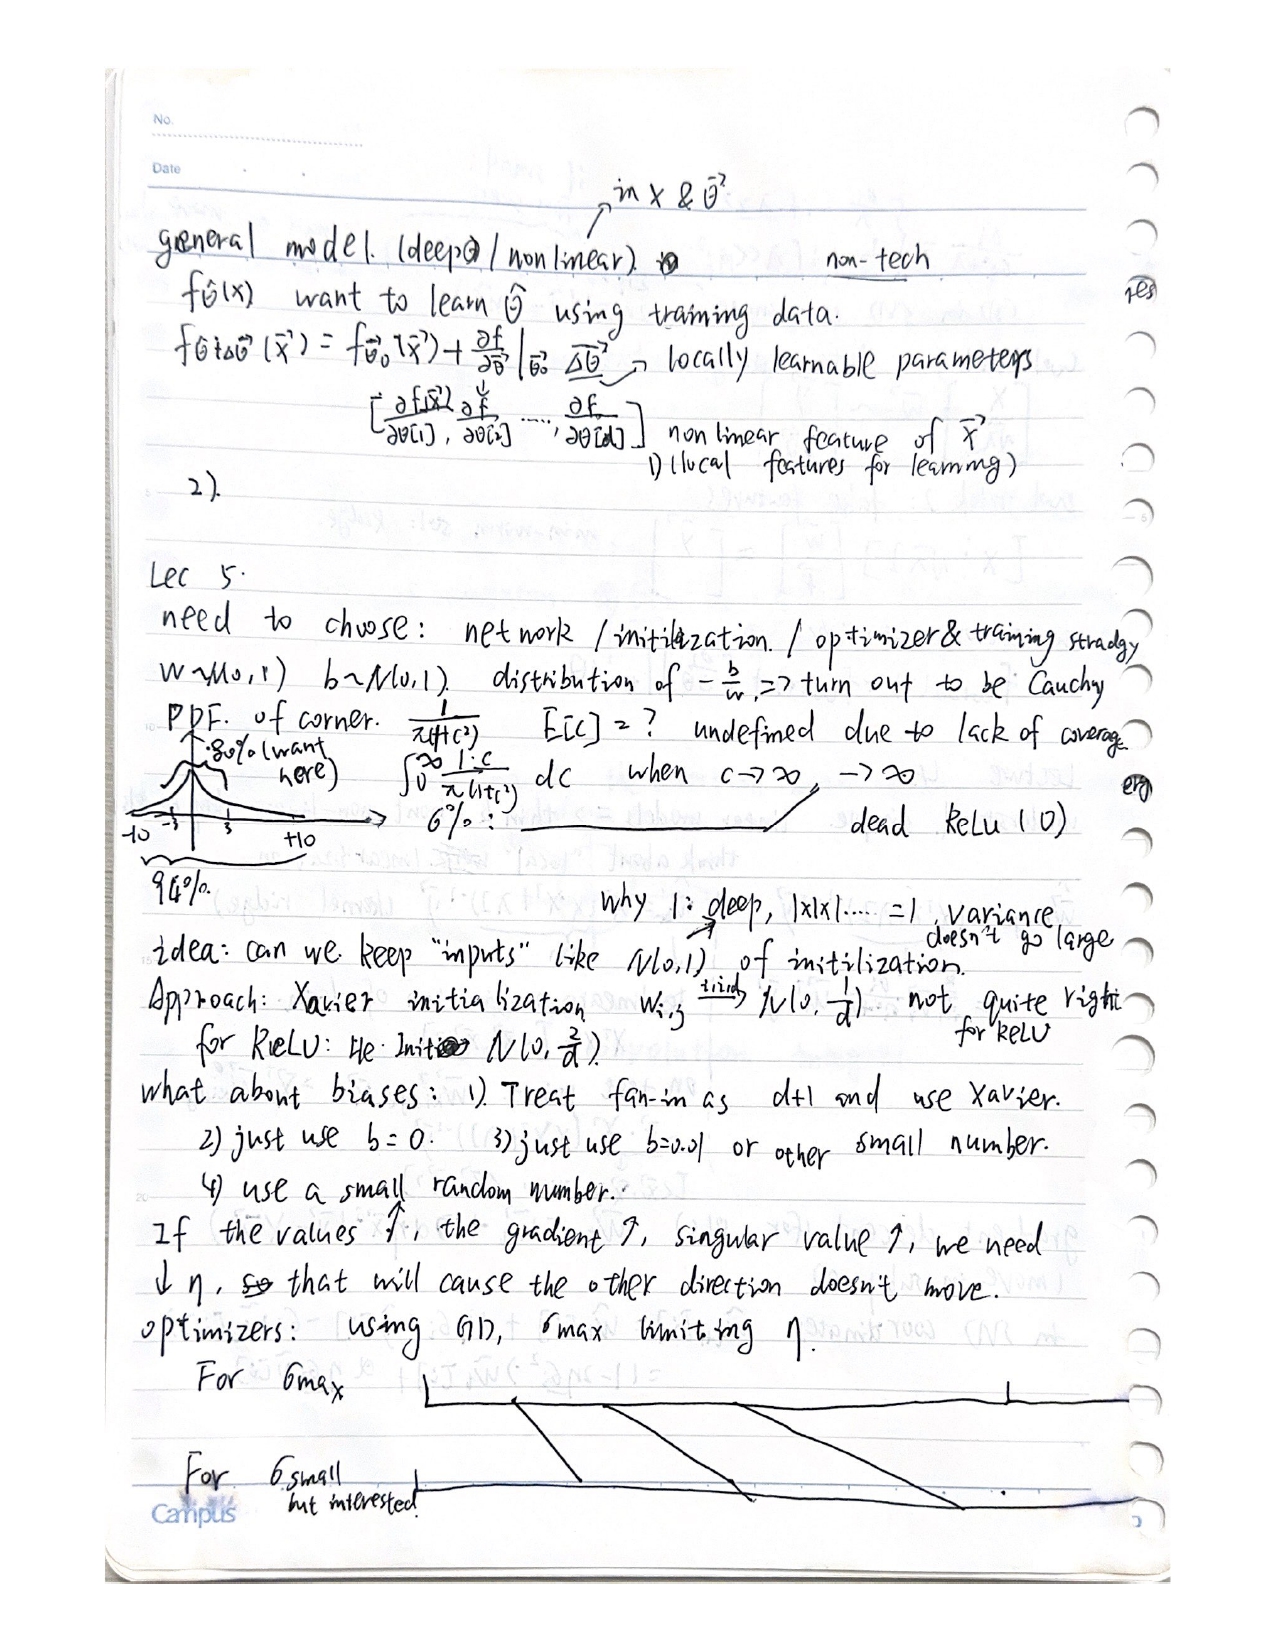 No.
Date
in x & θ⃗
general model. (deep / nonlinear). non-tech
fθ̂(x) want to learn θ̂ using training data.
fθ+Δθ⃗ (x⃗) = fθ⃗₀(x⃗) + ∂f/∂θ⃗ |θ⃗₀ Δθ⃗ → locally learnable parameters
[∂f(x⃗)/∂θ[1], ∂f/∂θ[2] ....., ∂f/∂θ[d]] nonlinear feature of x⃗
1) (local features for learning)
2).
Lec 5.
need to choose: network / initilization. / optimizer & training stradgy
w~N(0,1) b~N(0,1). distribution of -b/w, => turn out to be Cauchy
PDF. of corner. 1/π(1+c²) E[c] = ? undefined due to lack of coverage
80% (want here) ∫₀^∞ 1·c/π(1+c²) dc when c→∞, →∞
-10 -3 3 +10 6%: dead ReLu (0)
94%.
why 1: deep, 1x1x1.... = 1, variance doesn't go large
idea: can we keep "inputs" like N(0,1) of initilization.
Approach: Xavier initialization Wi,j iid→ N(0, 1/d) not quite right for ReLU
for ReLU: He Init N(0, 2/d).
what about biases: 1). Treat fan-in as d+1 and use Xavier.
2) just use b=0. 3) just use b=0.01 or other small number.
4) use a small random number.
If the values ↑, the gradient ↑, singular value ↑, we need
↓ η, that will cause the other direction doesn't move.
optimizers: using GD, σmax limiting η.
For σmax
For σsmall
but interested
Campus